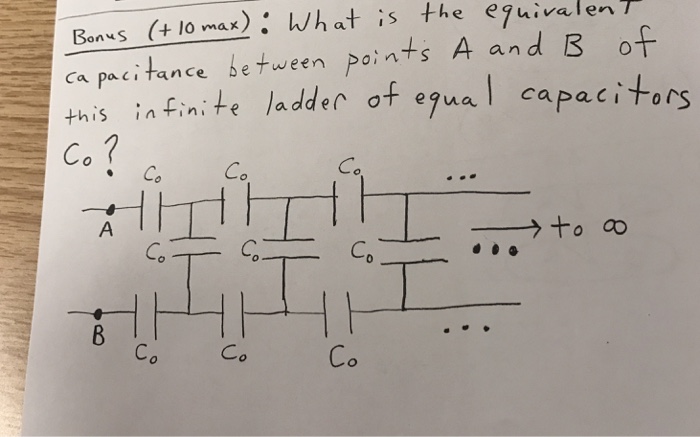 Bonus (+10 max): What is the equivalent
capacitance between points A and B of
this infinite ladder of equal capacitors
Co?
Co Co Co ...
A
Co Co Co ... to ∞
B
Co Co Co ...